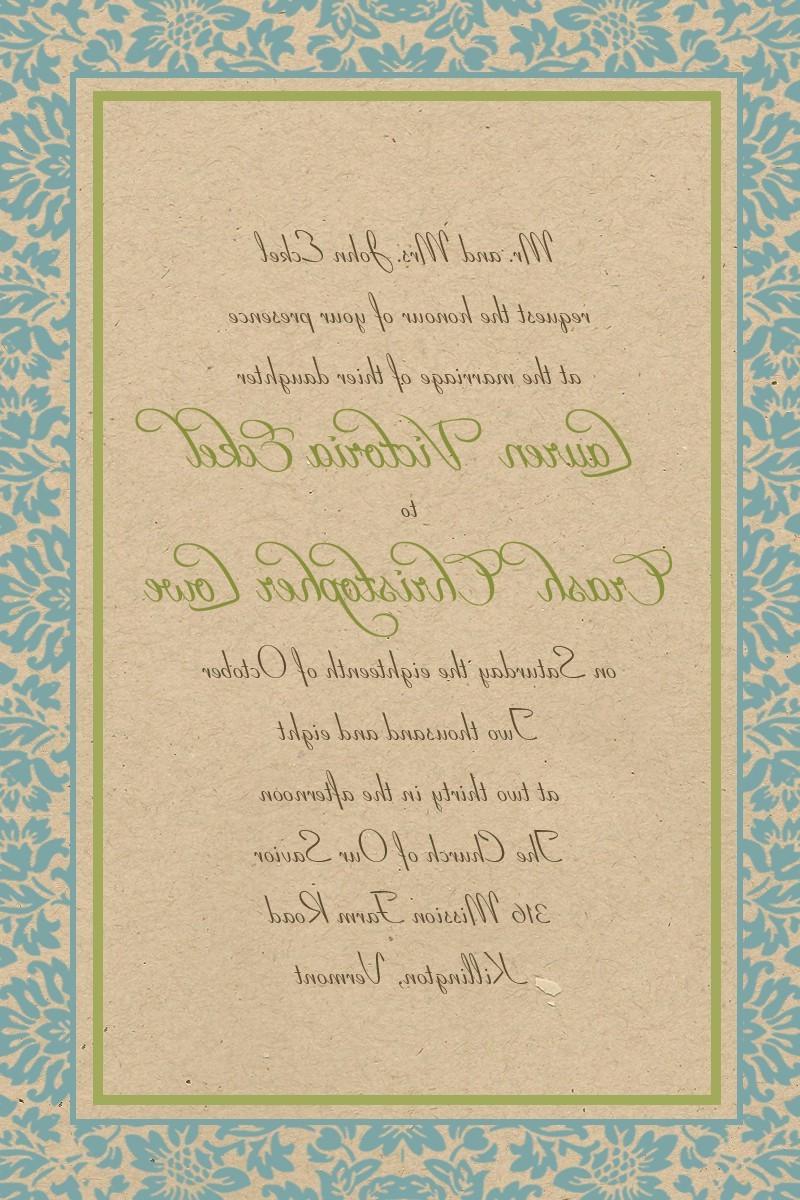 Mr. and Mrs. John Eckel
request the honour of your presence
at the marriage of thier daughter
Lauren Victoria Eckel
to
Crash Christopher Lowe
on Saturday the eighteenth of October
Two thousand and eight
at two thirty in the afternoon
The Church of Our Savior
316 Mission Farm Road
Killington, Vermont